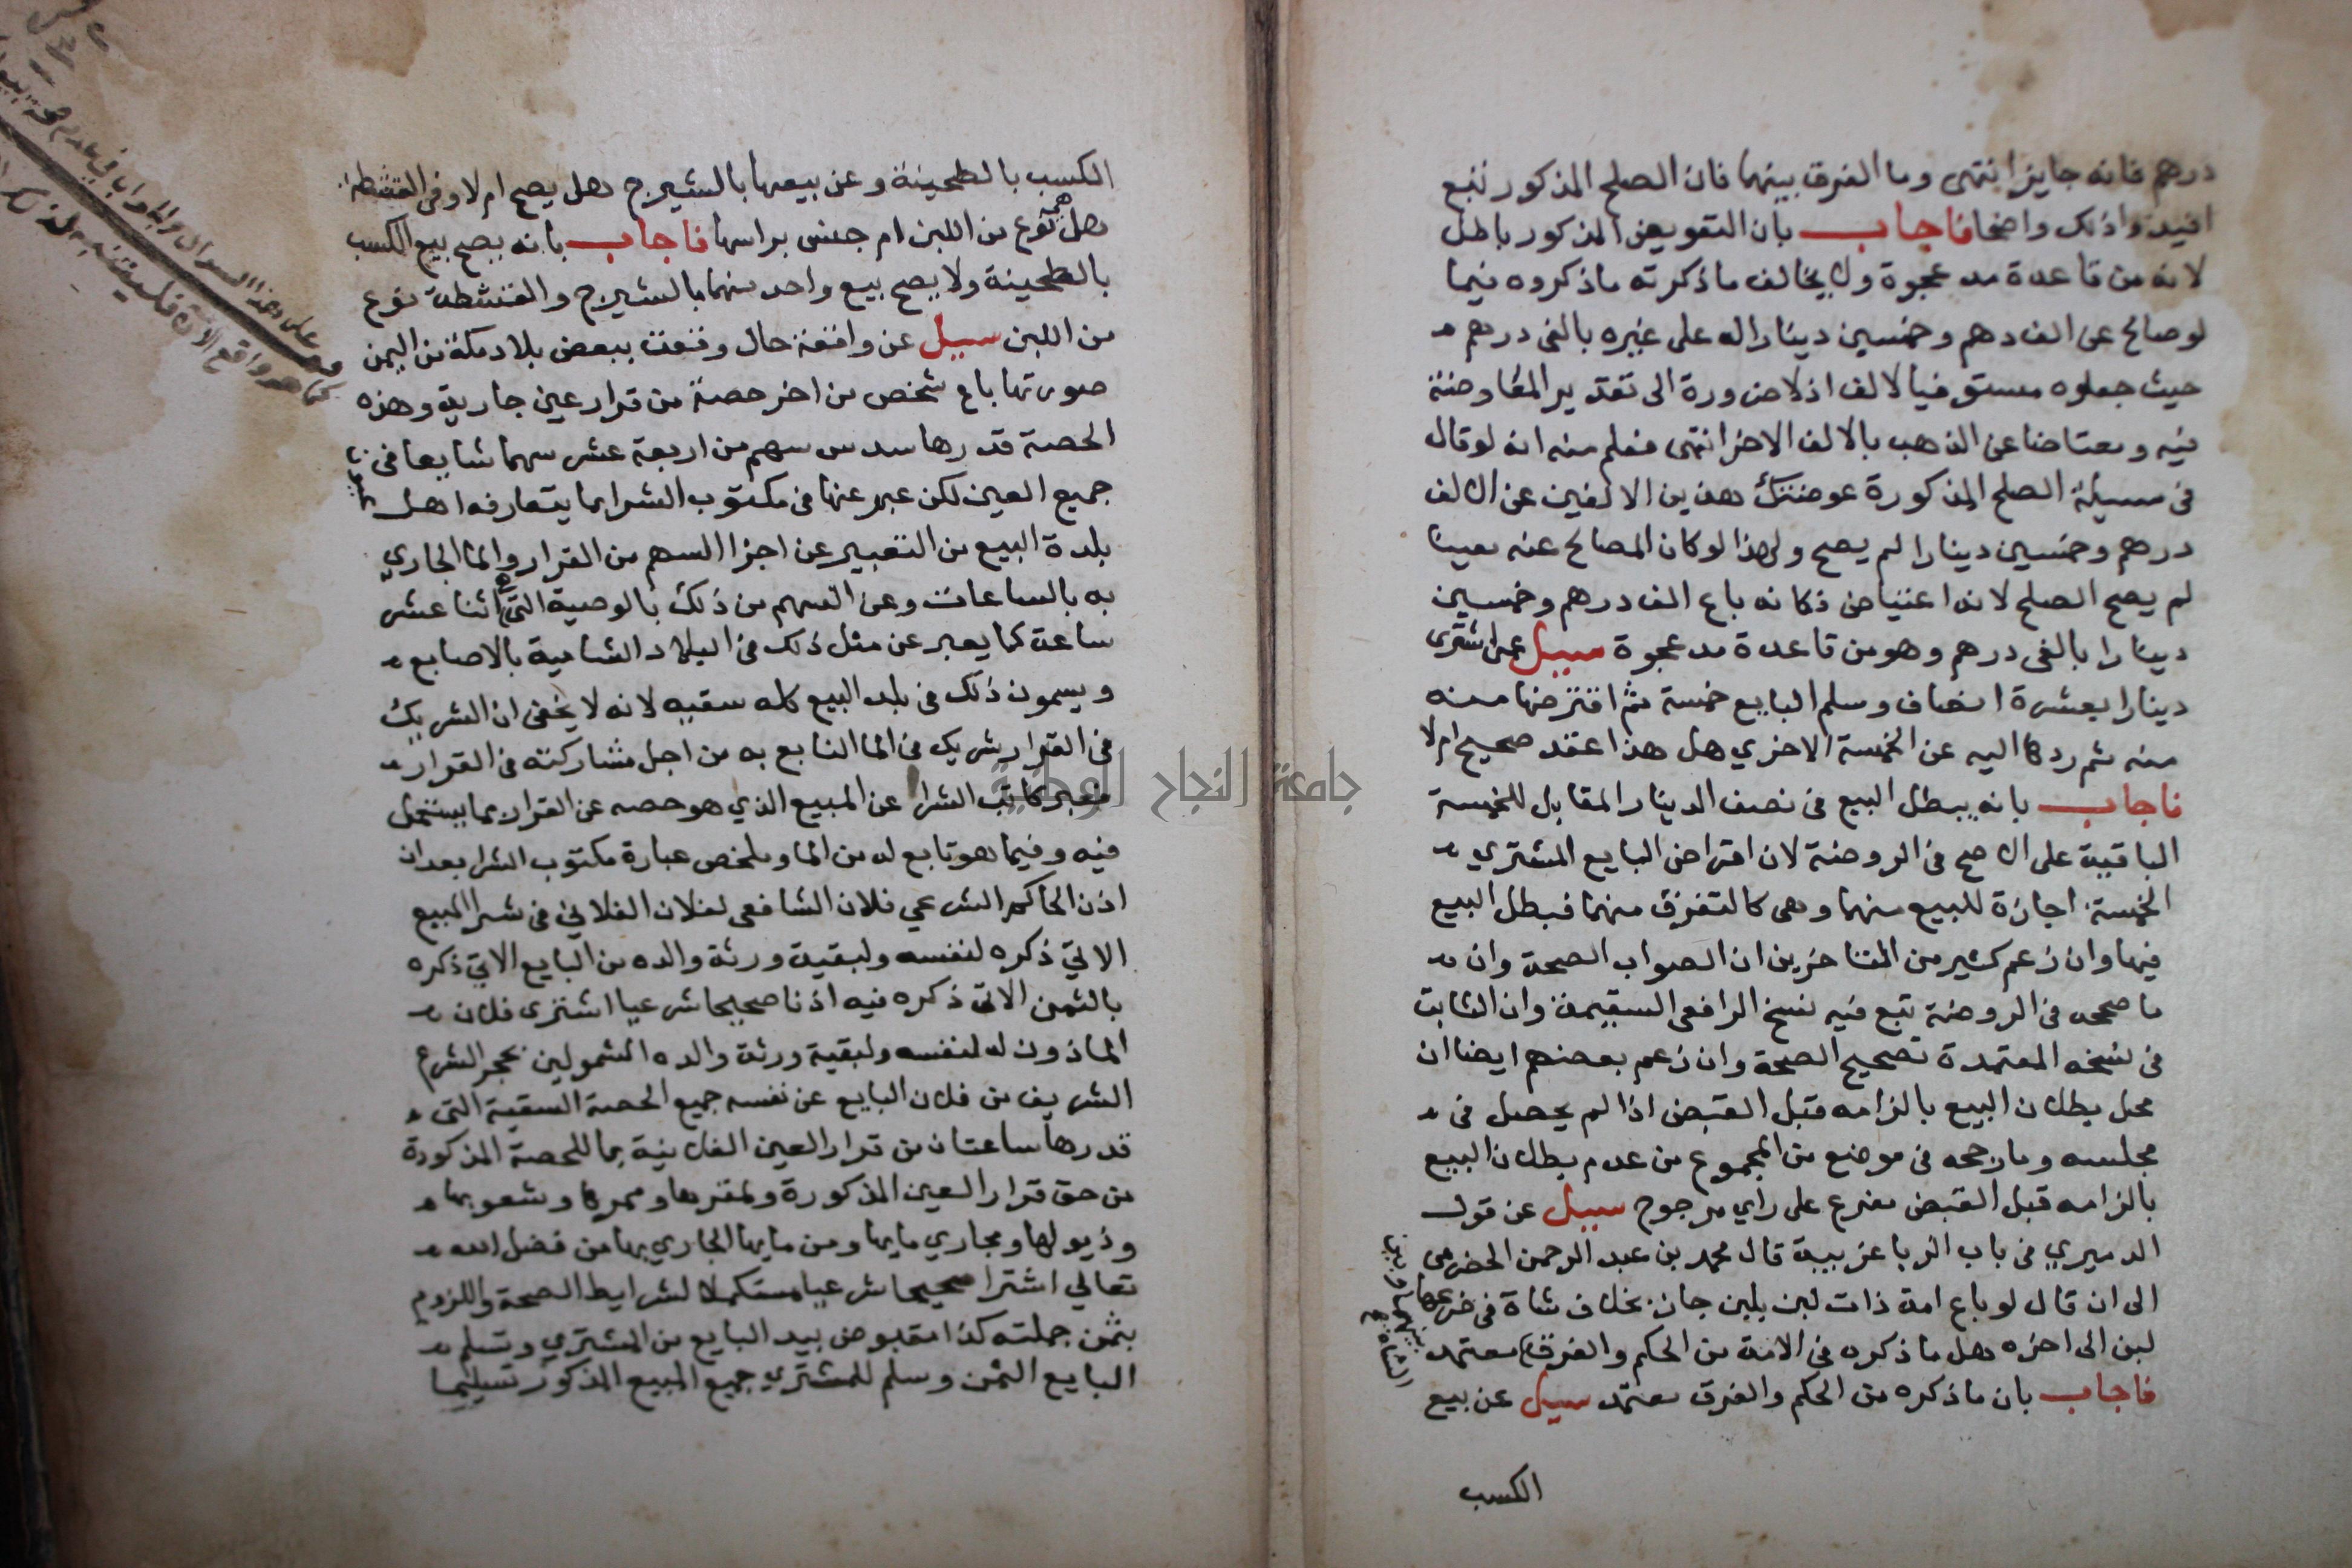 درهم فانه جايز انتهى وما الفرق بينهما فان الصلح المذكور نفع
افيدوا ذلك واضحا فاجاب بان التقويض المذكور باطل
لانه من قاعدة مد عجوة ولا يخالف ما ذكرته ما ذكروه فيما
لو صالح عن الف دهم وخمسين دينارا له على غيره بالفى درهم
حيث جعلوه مستوفيا لالف اذ لا ضرورة الى تقدير المعاوضة
فيه ومعتاضا عن الذهب بالالف الاخر انتهى فعلم منه انه لو قال
فى مسيلة الصلح المذكورة عوضتك هذين الالفين عن الالف
درهم وخمسين دينارا لم يصح ولهذا لو كان المصالح عنه معينا
لم يصح الصلح لانه اعتياض فكانه باع الف درهم وخمسين
دينارا بالفى درهم وهو من قاعدة مد عجوة سييل عمن اشترى
دينارا بعشرة انصاف وسلم البايع خمسة ثم اقترضها منه
منه ثم ردها اليه عن الخمسة الاخري هل هذا عقد صحيح ام لا
فاجاب بانه يبطل البيع فى نصف الدينار المقابل للخمسة
الباقية على الاصح فى الروضة لان اقتراض البايع المشتري
الخمسة اجازة للبيع منهما وهى كالتفرق منهما فبطل البيع
فيها وان زعم كثير من المتاخرين ان الصواب الصحة وان
ما صححه فى الروضة تبع فيه نسخ الرافعى السقيمة وان الثابت
فى نسخه المعتمدة تصحيح الصحة وان زعم بعضهم ايضا ان
محل بطلان البيع بالزامه قبل القبض اذا لم يحصل فى
مجلسه وما رجحه فى موضع من المجموع من عدم بطلان البيع
بالزامه قبل القبض مفرع على راي مرجوح سييل عن قول
الدميري فى باب الربا غريبة قال محمد بن عبد الرحمن الحضرمى
الى ان قال لو باع امة ذات لبن بلبن جاز بخلاف شاة فى ضرعها
لبن الى اخره هل ما ذكره فى الامة من الحكم والفرق معتمد
بينهما وبين الشاة
فاجاب بان ما ذكره من الحكم والفرق معتمد سييل عن بيع
الكسب
الكسب بالطحينة وعن بيعها بالشيرج هل يصح ام لا وفى القشطة
هل هى نوع من اللبن ام جنس براسها فاجاب بانه يصح بيع الكسب
بالطحينة ولا يصح بيع واحد منهما بالشيرج والقشطة نوع
من اللبن سييل عن واقعة حال وقعت ببعض بلاد مكة من اليمن
صورتها باع شخص من اخر حصة من قرار عين جارية وهذه
الحصة قدرها سدس سهم من اربعة عشر سهما شايعا فى
جميع العين لكن عبر عنها فى مكتوب الشرا بما يتعارفه اهل
بلدة البيع من التعبير عن اجزا السهم من القرار والما الجاري
به بالساعات وعن السهم من ذلك بالوصية التي اثنا عشر
ساعة كما يعبر عن مثل ذلك فى البلاد الشامية بالاصابع
ويسمون ذلك فى بلد البيع كله سقيه لانه لا يخفى ان الشريك
فى القرار شريك فى الما التابع به من اجل مشاركته فى القرار
فعبر كاتب الشرا عن المبيع الذي هو حصه عن القرار بما يستعمل
فيه وفيما هو تابع له من الما وملخص عبارة مكتوب الشرا بعد ان
اذن الحاكم الشرعي فلان الشافعى لفلان الفلاني فى شرا المبيع
الاتي ذكره لنفسه ولبقية ورثة والده من البايع الاتي ذكره
بالثمن الاتى ذكره فيه اذنا صحيحا شرعيا اشترى فلان
الماذون له لنفسه ولبقية ورثة والده المشمولين بحجر الشرع
الشريف من فلان البايع عن نفسه جميع الحصة السقية التى
قدرها ساعتان من قرار العين الفلانية بما للحصة المذكورة
من حق قرار العين المذكورة ولمقرها وممرها وشعوبها
وذيولها ومجاري مايها ومن مايها الجاري بها من فضل الله
تعالي اشترا صحيحا شرعيا مستكملا لشرايط الصحة واللزوم
بثمن جملته كذا مقبوض بيد البايع من المشتري وتسلم
البايع الثمن وسلم للمشتري جميع المبيع المذكور تسليما
جامعة النجاح الوطنية